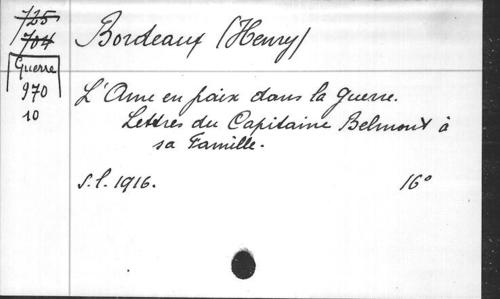 725
704
Guerre
970
10
Bordeaux (Henry)
L'Ame en paix dans la Guerre.
Lettres du Capitaine Belmont à
sa Famille.
s.l. 1916. 16°